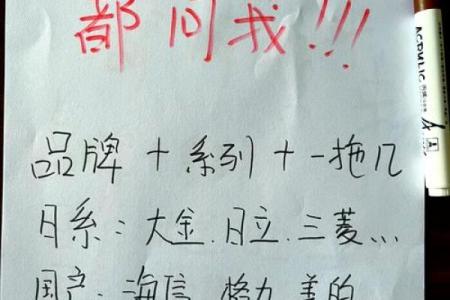 都问我!!!
品牌 + 系列 + 一拖几
日系: 大金.日立.三菱...
国产: 海信.格力.美的
ACRYLIC